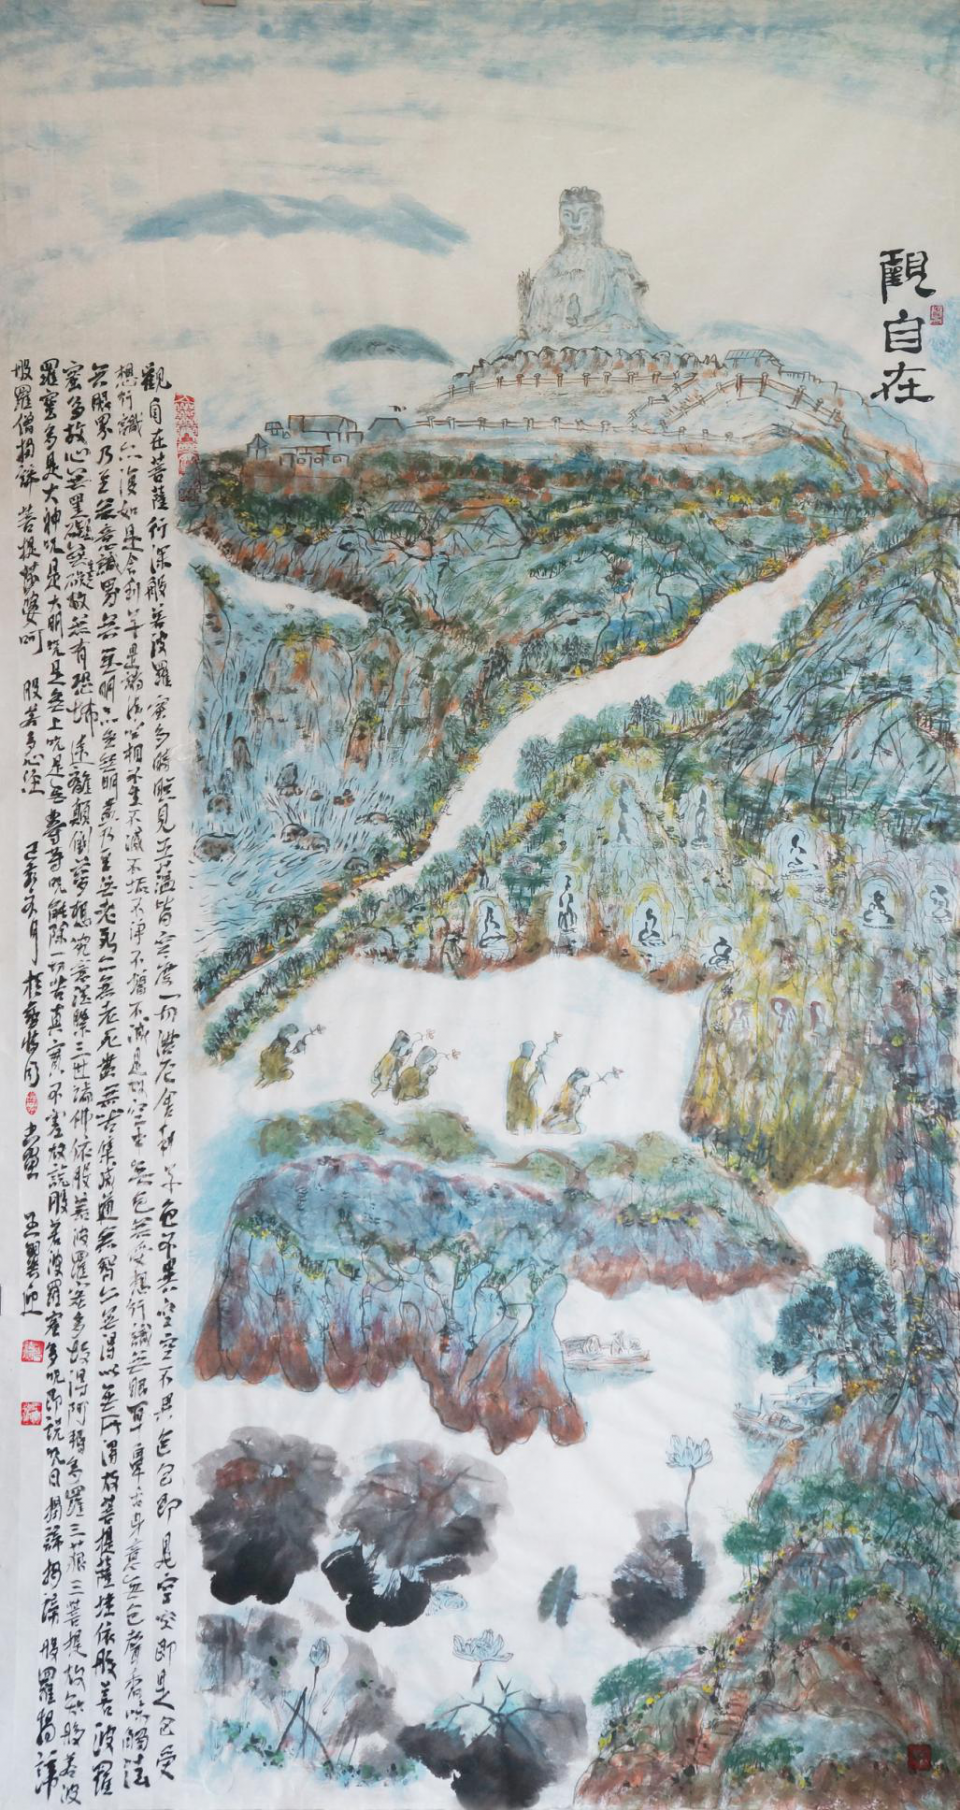 觀自在
觀自在菩薩行深般若波羅蜜多時照見五蘊皆空度一切苦厄舍利子色不異空空不異色色即是空空即是色受
想行識亦復如是舍利子是諸法空相不生不滅不垢不淨不增不減是故空中無色無受想行識無眼耳鼻舌身意無色聲香味觸法
无眼界乃至无意識界无无明亦无无明盡乃至无老死亦无老死盡无苦集滅道无智亦无得以无所得故菩提薩埵依般若波羅
蜜多故心无罣礙无罣礙故无有恐怖遠離顛倒夢想究竟涅槃三世諸佛依般若波羅蜜多故得阿耨多羅三藐三菩提故知般若波
羅蜜多是大神咒是大明咒是无上咒是无等等咒能除一切苦真實不虛故說般若波羅蜜多咒即說咒曰揭諦揭諦般羅揭諦
般羅僧揭諦 菩提薩婆呵 般若多心經 己亥冬月 於